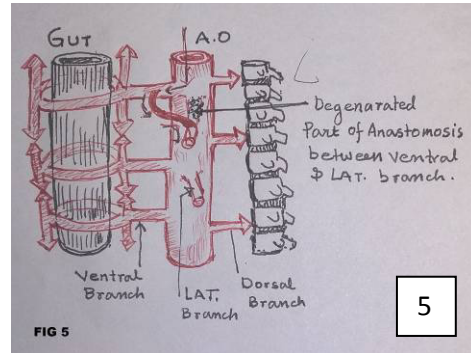 GUT
A.O
Degenarated
Part of Anastomosis
between Ventral
& LAT. branch.
Ventral
Branch
LAT.
Branch
Dorsal
Branch
FIG 5
5